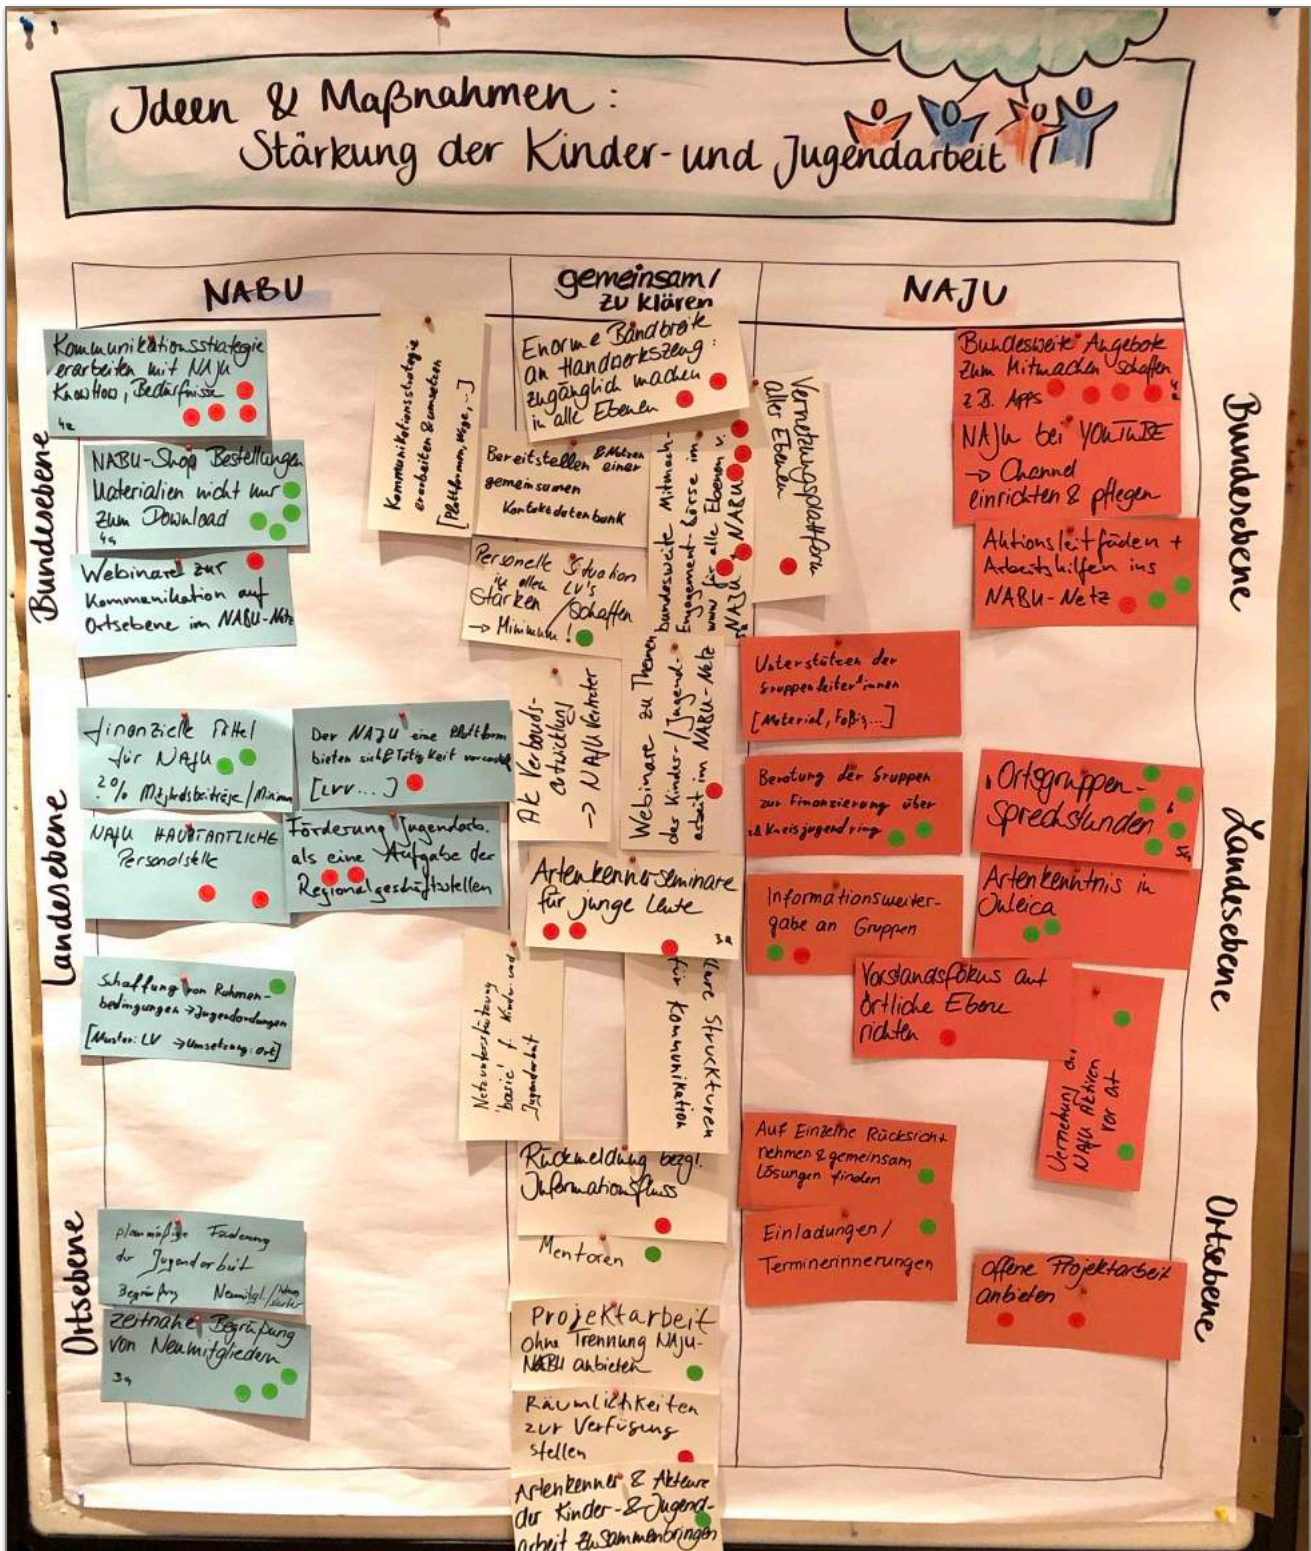 Ideen & Maßnahmen:
Stärkung der Kinder- und Jugendarbeit
NABU
gemeinsam/
zu klären
NAJU
Bundesebene
Landesebene
Ortsebene
Kommunikationsstrategie
erarbeiten mit NAJU
KnowHow, Bedürfnisse
4x
NABU-Shop Bestellungen
Materialien nicht nur
zum Download
4x
Webinare zur
Kommunikation auf
Ortsebene im NABU-Netz
finanzielle Mittel
für NAJU
2% Mitgliedsbeiträge/
Der NAJU eine Plattform
bieten sich & Tätigkeit
[LVV...]
NAJU HAUPTAMTLICHE
Personalstelle
Förderung Jugendarb.
als eine Aufgabe der
Regionalgeschäftsstellen
Schaffung von Rahmen-
bedingungen → Jugendordnungen
[Muster: LV → Umsetzung: Ort]
planmäßige Förderung
der Jugendarbeit
Begrüßung Neumitgl./
zeitnahe Begrüßung
von Neumitgliedern
3x
Kommunikationsstrategie
erarbeiten & umsetzen
[Plattformen, Wege, ...]
Enorme Bandbreite
an Handwerkszeug:
zugänglich machen
in alle Ebenen
Bereitstellen & Nutzen einer
gemeinsamen
Kontaktdatenbank
bundesweite Mitmach-
Engagement-Börse im
www für alle Ebenen v.
NAJU + NABU
Vernetzungsplattform
aller Ebenen
Personelle Situation
in allen LV's
stärken / schaffen
→ Minimum!
AK Verbands-
entwicklung
→ NAJU Vertreter
Webinare zu Themen
der Kinder-/Jugend-
arbeit im NABU-Netz
Artenkennerseminare
für junge Leute
3x
Netzunterstützung
'basic' f. Kinder- und
Jugendarbeit
klare Struckturen
für Kommunikation
Rückmeldung bezgl.
Informationsfluss
Mentoren
Projektarbeit
ohne Trennung NAJU-
NABU anbieten
Räumlichkeiten
zur Verfügung
stellen
Artenkenner & Akteure
der Kinder- & Jugend-
arbeit zusammenbringen
Bundesweite Angebote
zum Mitmachen schaffen
z.B. Apps
NAJU bei YOUTUBE
→ Channel
einrichten & pflegen
Aktionsleitfäden +
Arbeitshilfen ins
NABU-Netz
Unterstützen der
Gruppenleiter*innen
[Material, FoBi, ...]
Beratung der Gruppen
zur Finanzierung über
z.B. Kreisjugendring
"Ortsgruppen-
sprechstunden"
5x
Informationsweiter-
gabe an Gruppen
Artenkenntnis in
Juleica
Vorstandsfokus auf
örtliche Ebene
richten
NAJU Aktiven
vor Ort
Auf Einzelne Rücksicht
nehmen & gemeinsam
Lösungen finden
Einladungen/
Terminerinnerungen
offene Projektarbeit
anbieten
Bundesebene
Landesebene
Ortsebene